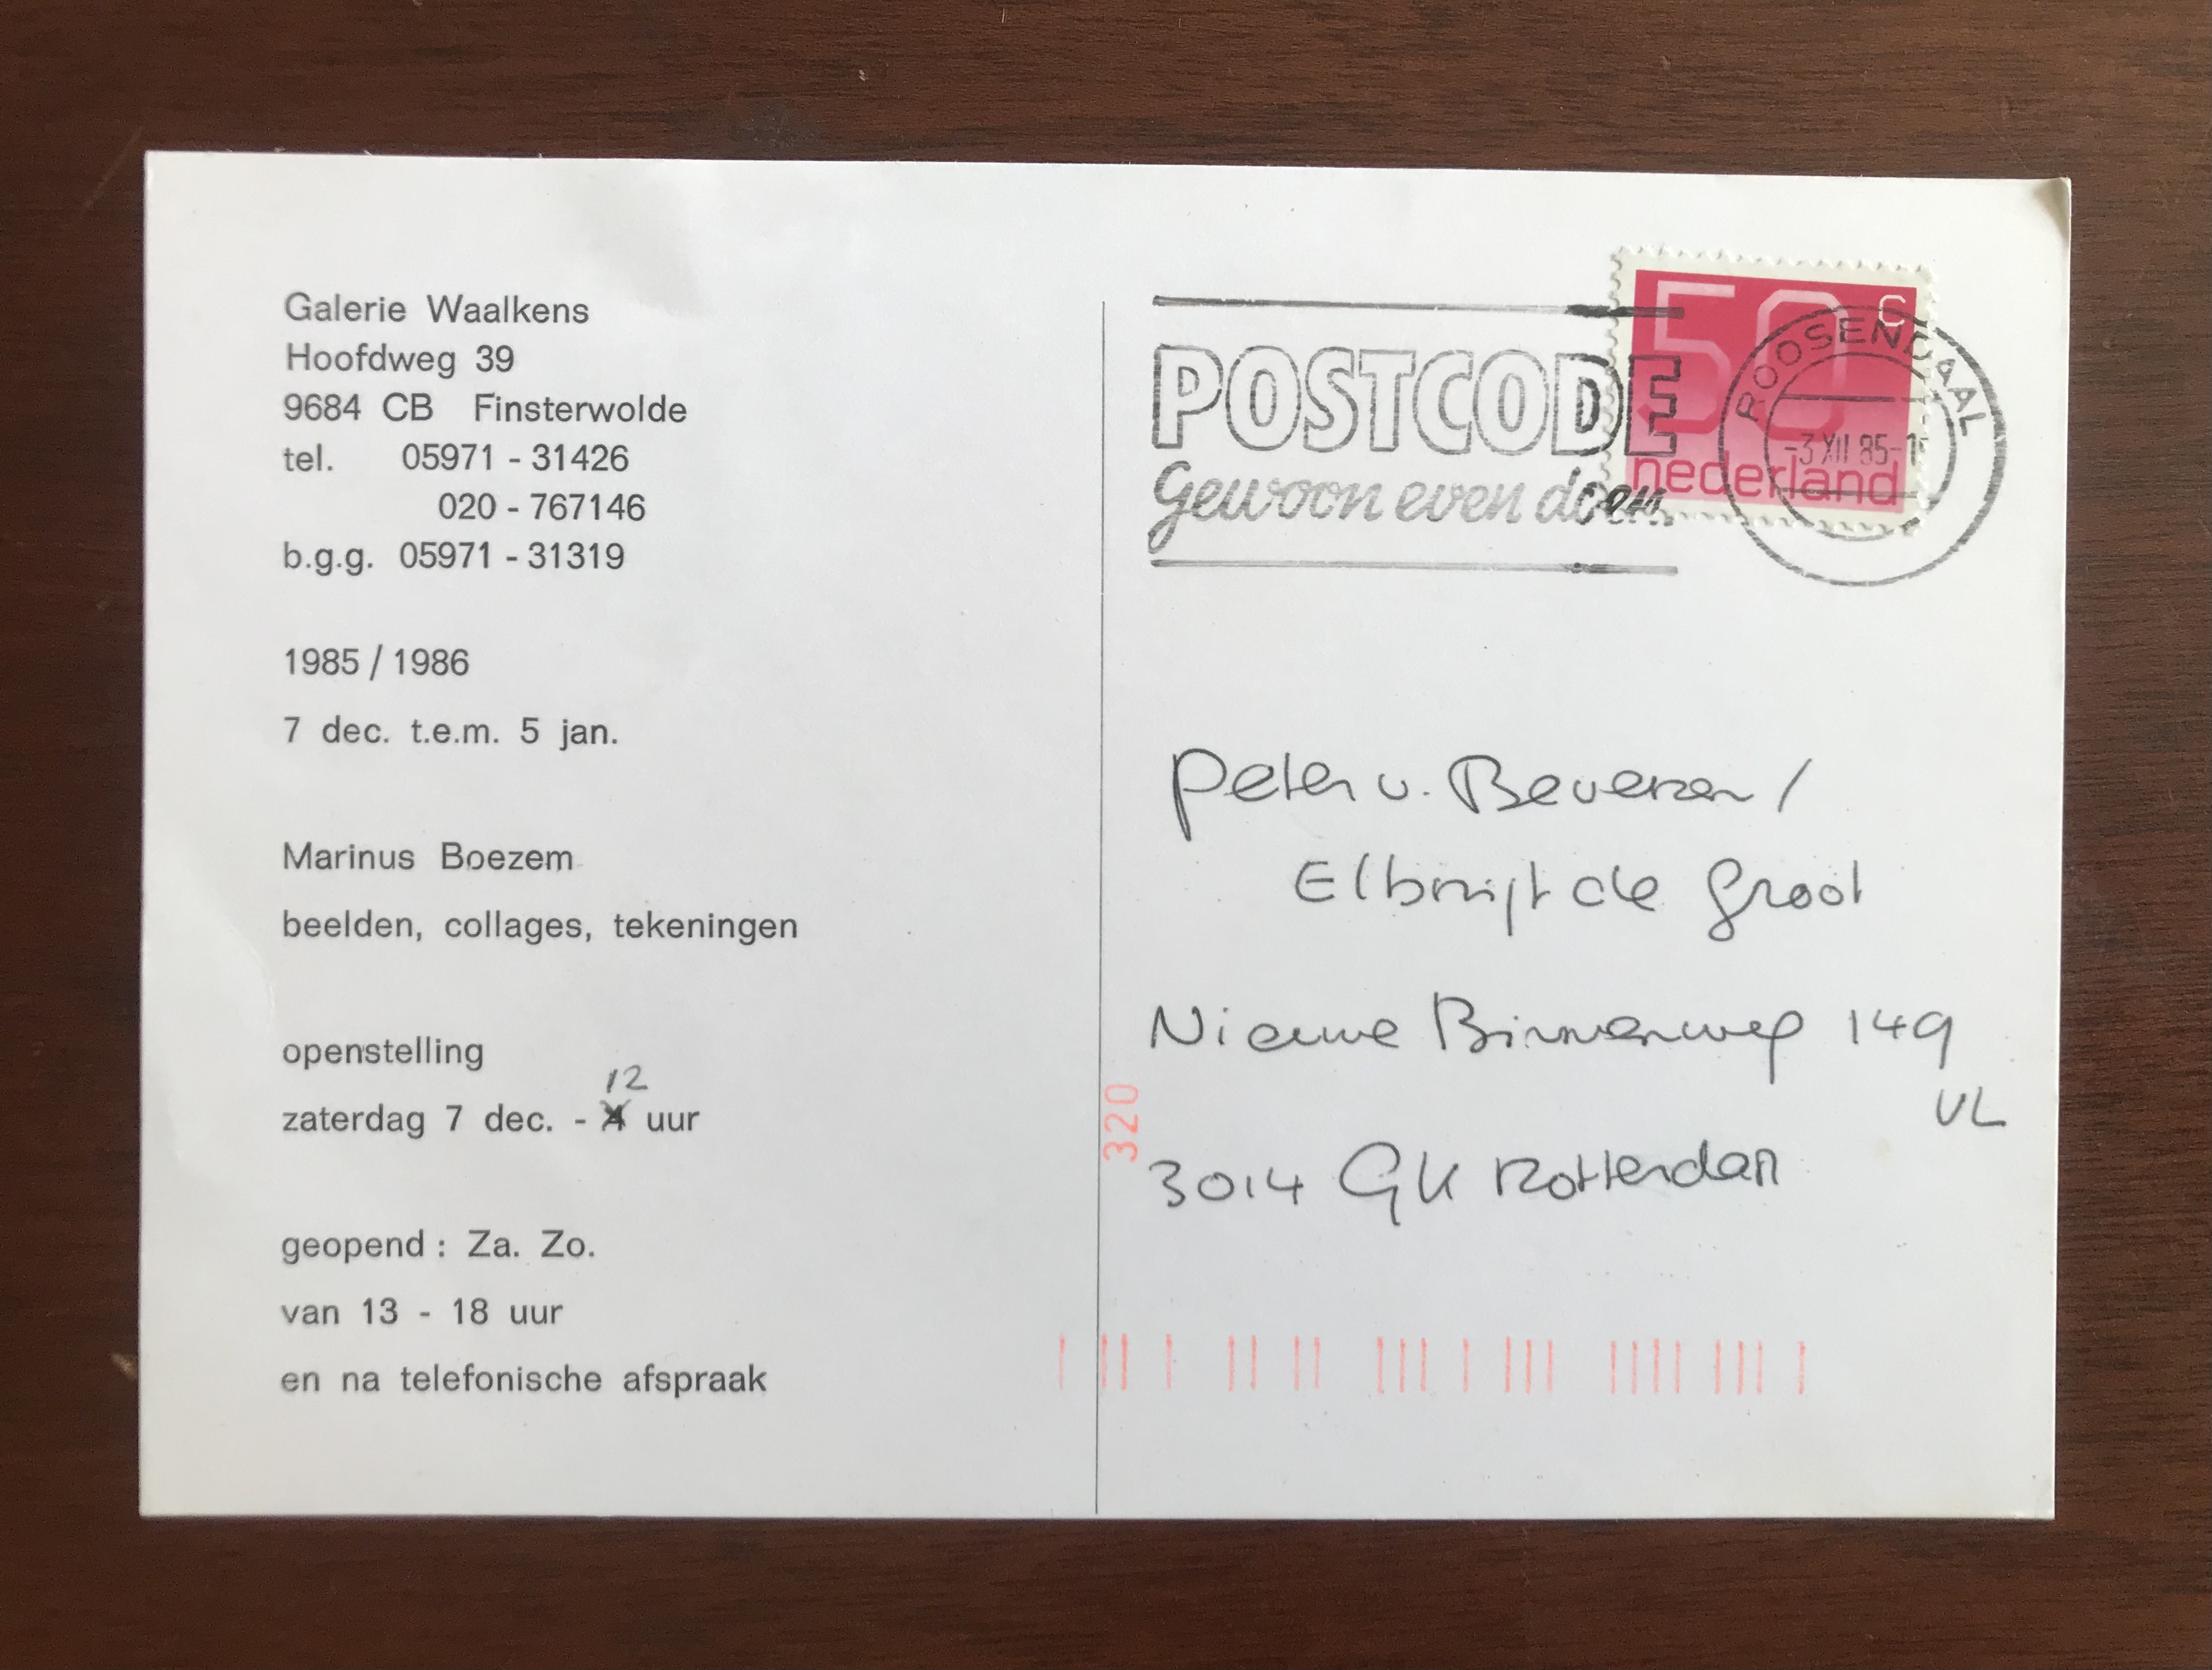 Galerie Waalkens
Hoofdweg 39
9684 CB Finsterwolde
tel. 05971 - 31426
020 - 767146
b.g.g. 05971 - 31319
1985 / 1986
7 dec. t.e.m. 5 jan.
Marinus Boezem
beelden, collages, tekeningen
openstelling
12
zaterdag 7 dec. - 4 uur
geopend : Za. Zo.
van 13 - 18 uur
en na telefonische afspraak
POSTCODE
Gewoon even doen
50 c
nederland
ROOSENDAAL
-3 XII 85-
Peter v. Beveren /
Elbrigt de Groot
Nieuwe Binnenweg 149
VL
3014 GK Rotterdam
320